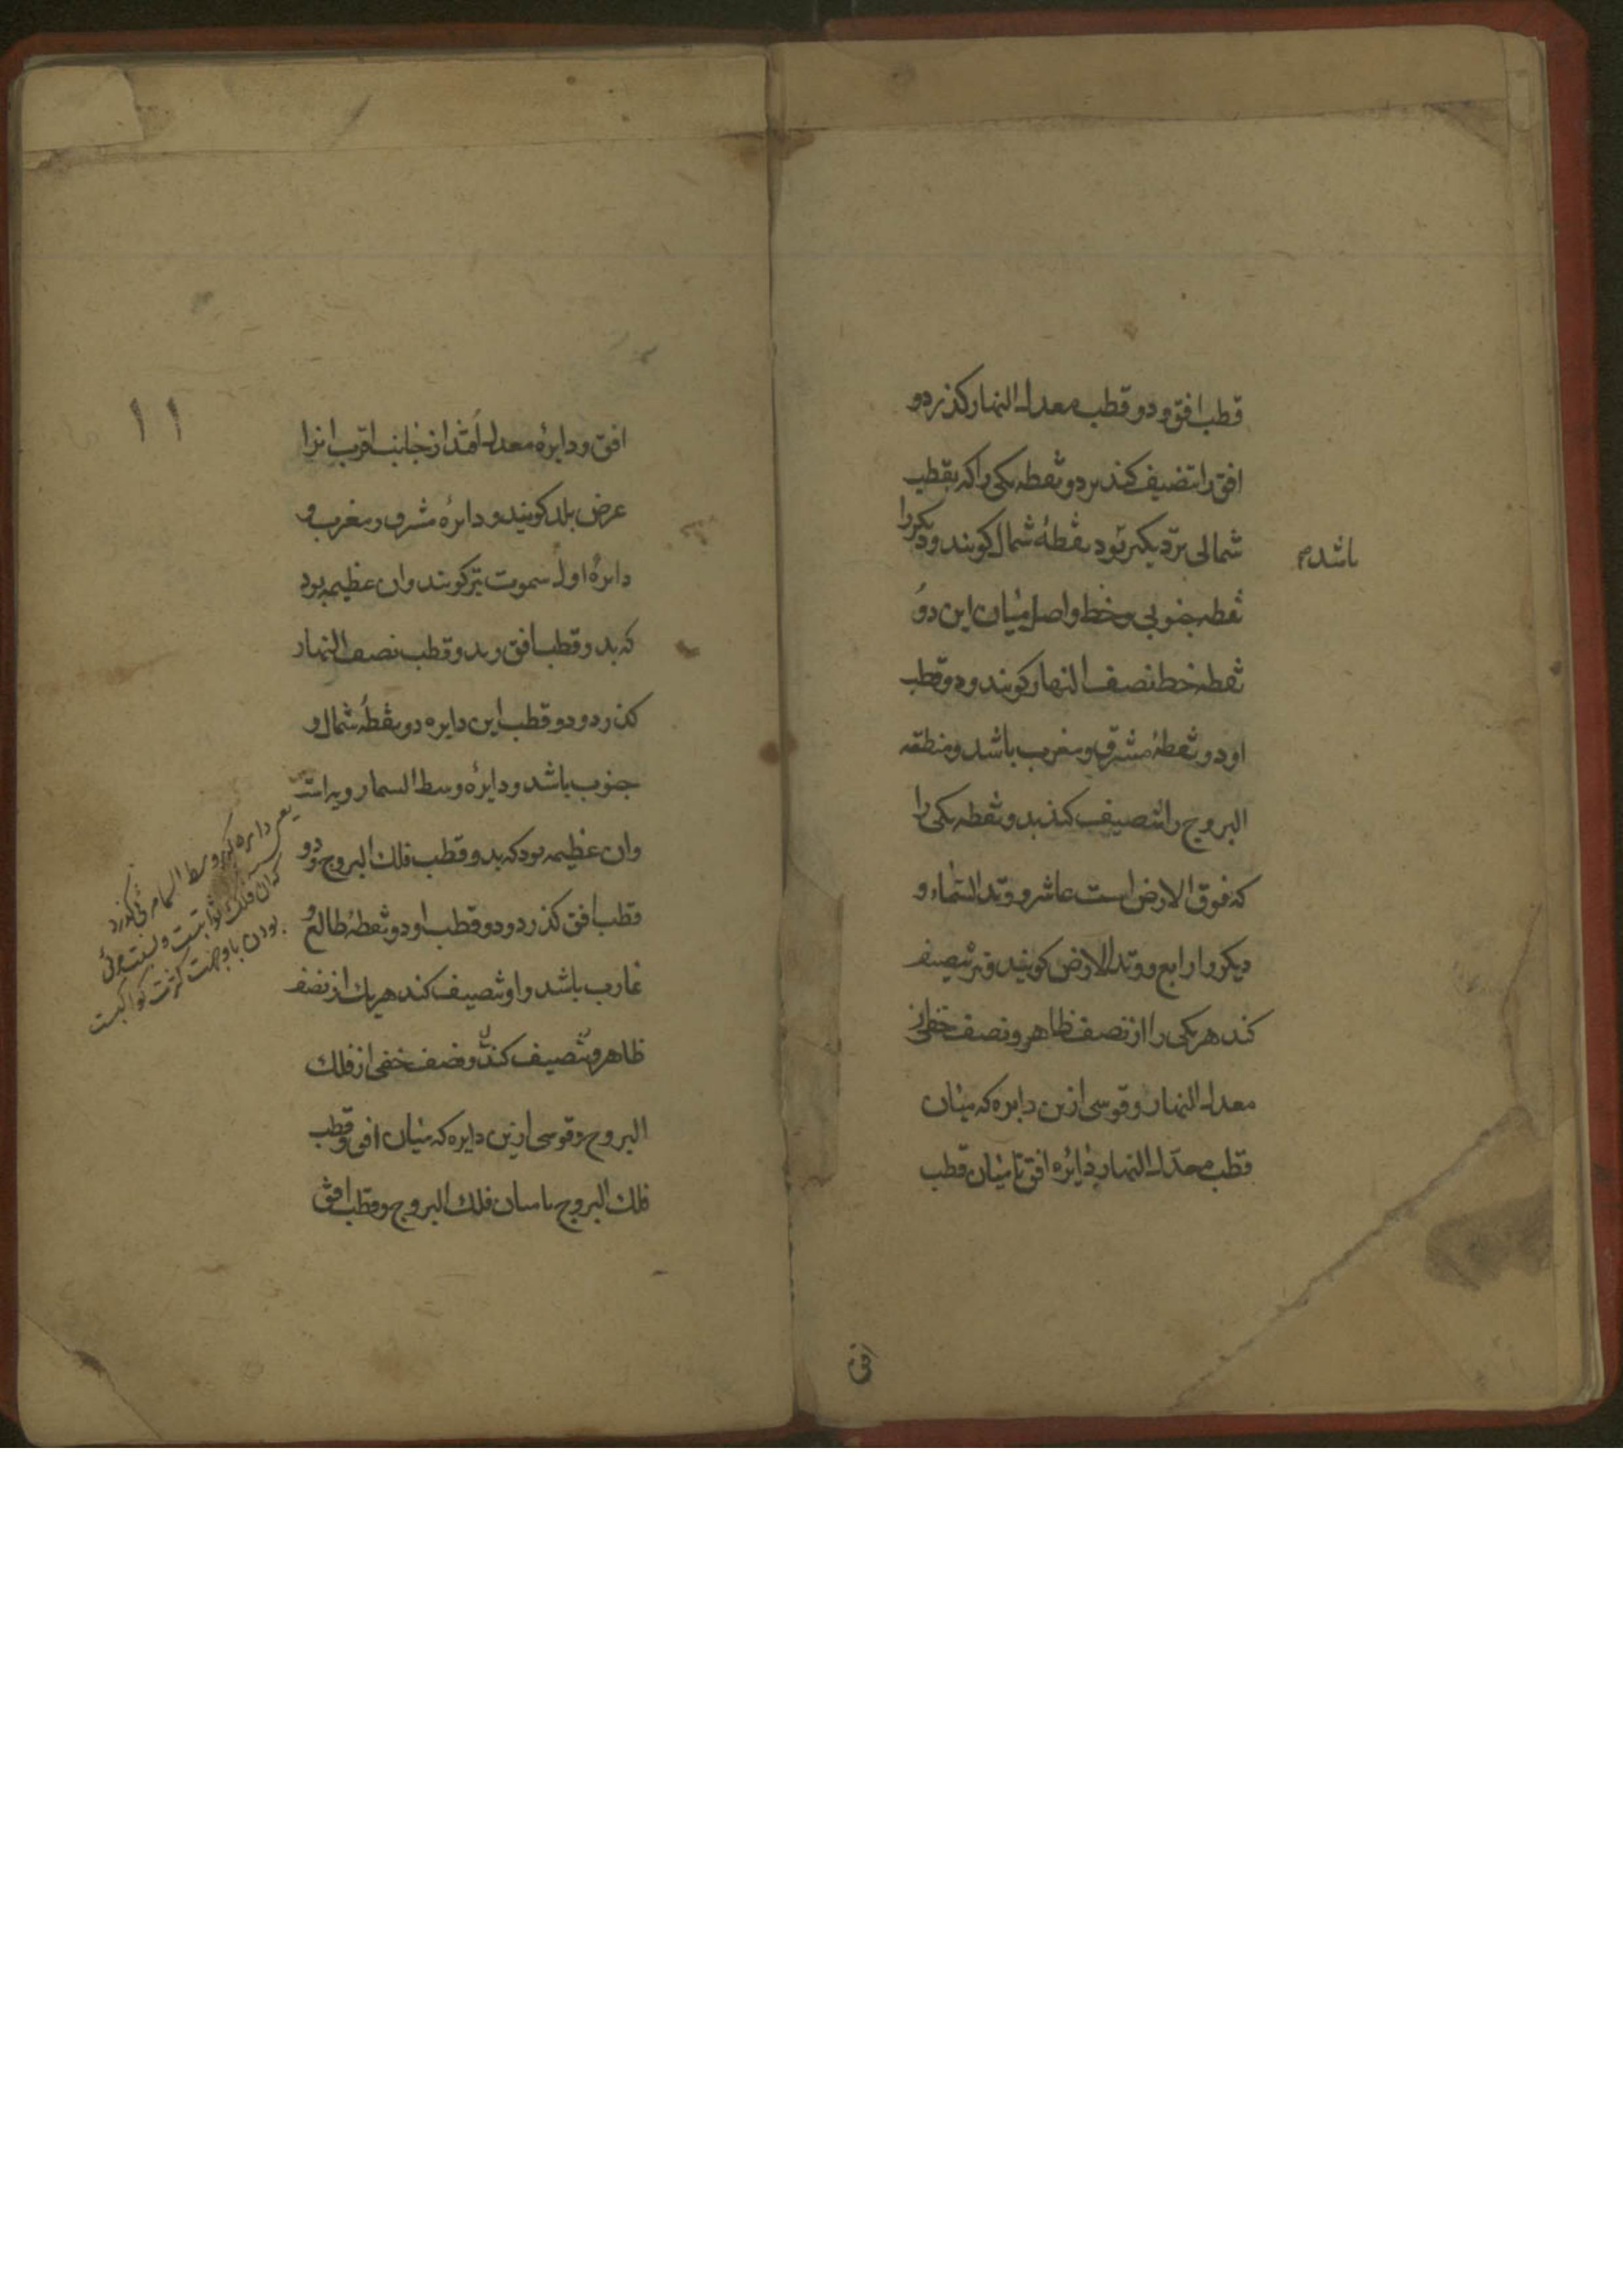 قطب افق و دو قطب معدل النهار کذرد و
افق را تنصیف کند بر دو نقطه یکی را که بقطب
شمالی نزدیکتر بود نقطهٔ شمال کویند و دیکر را
باشد
نقطه جنوبی و خط واصل میان این دو
نقطه خط نصف النهار کویند و دو قطب
او دو نقطهٔ مشرق و مغرب باشد و منطقه
البروج را تنصیف کند بدو نقطه یکی را
که فوق الارض است عاشر و وتد السماء و
دیکر را رابع و وتد الارض کویند و نیز تنصیف
کند هر یکی را از نصف ظاهر و نصف خفی از
معدل النهار و قوسی ازین دایره که میان
قطب معدل النهار و دایره افق تا میان قطب
افق
۱۱
افق و دایرهٔ معدل افتد از جانب اقرب انرا
عرض بلد کویند و دایرهٔ مشرق و مغرب و
دایرهٔ اول سموت نیز کویند و ان عظیمه بود
که بدو قطب افق و بدو قطب نصف النهار
کذرد و دو قطب این دایره دو نقطهٔ شمال و
جنوب باشد و دایرهٔ وسط السماء رویراست
وان عظیمه بود که بدو قطب فلک البروج و دو
قطب افق کذرد و دو قطب او دو نقطهٔ طالع و
غارب باشد و او تنصیف کند هر یک از نصف
ظاهر و تنصیف کند و نصف خفی از فلک
البروج و قوسی ازین دایره که میان افق و قطب
فلک البروج یا میان فلک البروج و قطب افق
یعنی دایره که وسط السماء
که ان فلک ثوابتست و
بودن با وجهت کثرت کواکبست